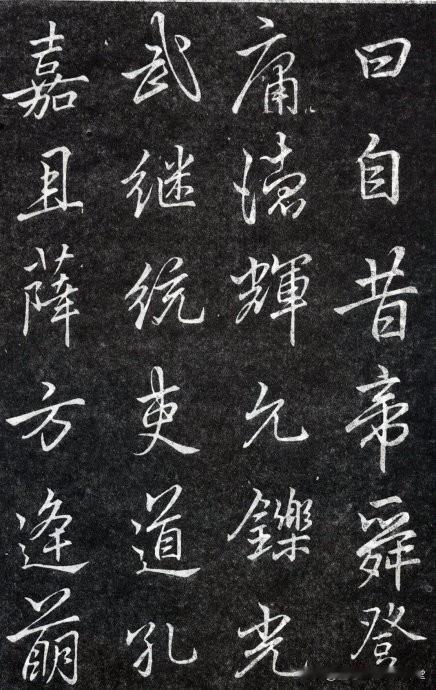 曰自昔帝舜登
庸德輝允鑠光
武继统吏道孔
嘉且薛方逢萌